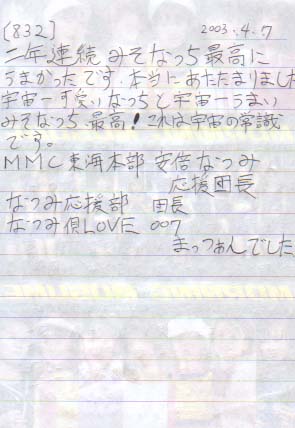 [832] 2003.4.7
二年連続 みそなっち最高に
うまかったです.本当にあたたまりました
宇宙一可愛いなっちと宇宙一うまい
みそなっち、最高!これは宇宙の常識
です。
MMC東海本部 安倍なつみ
応援団長
なつみ応援部 団長
なつみ倶LOVE 007
まっつぁんでした